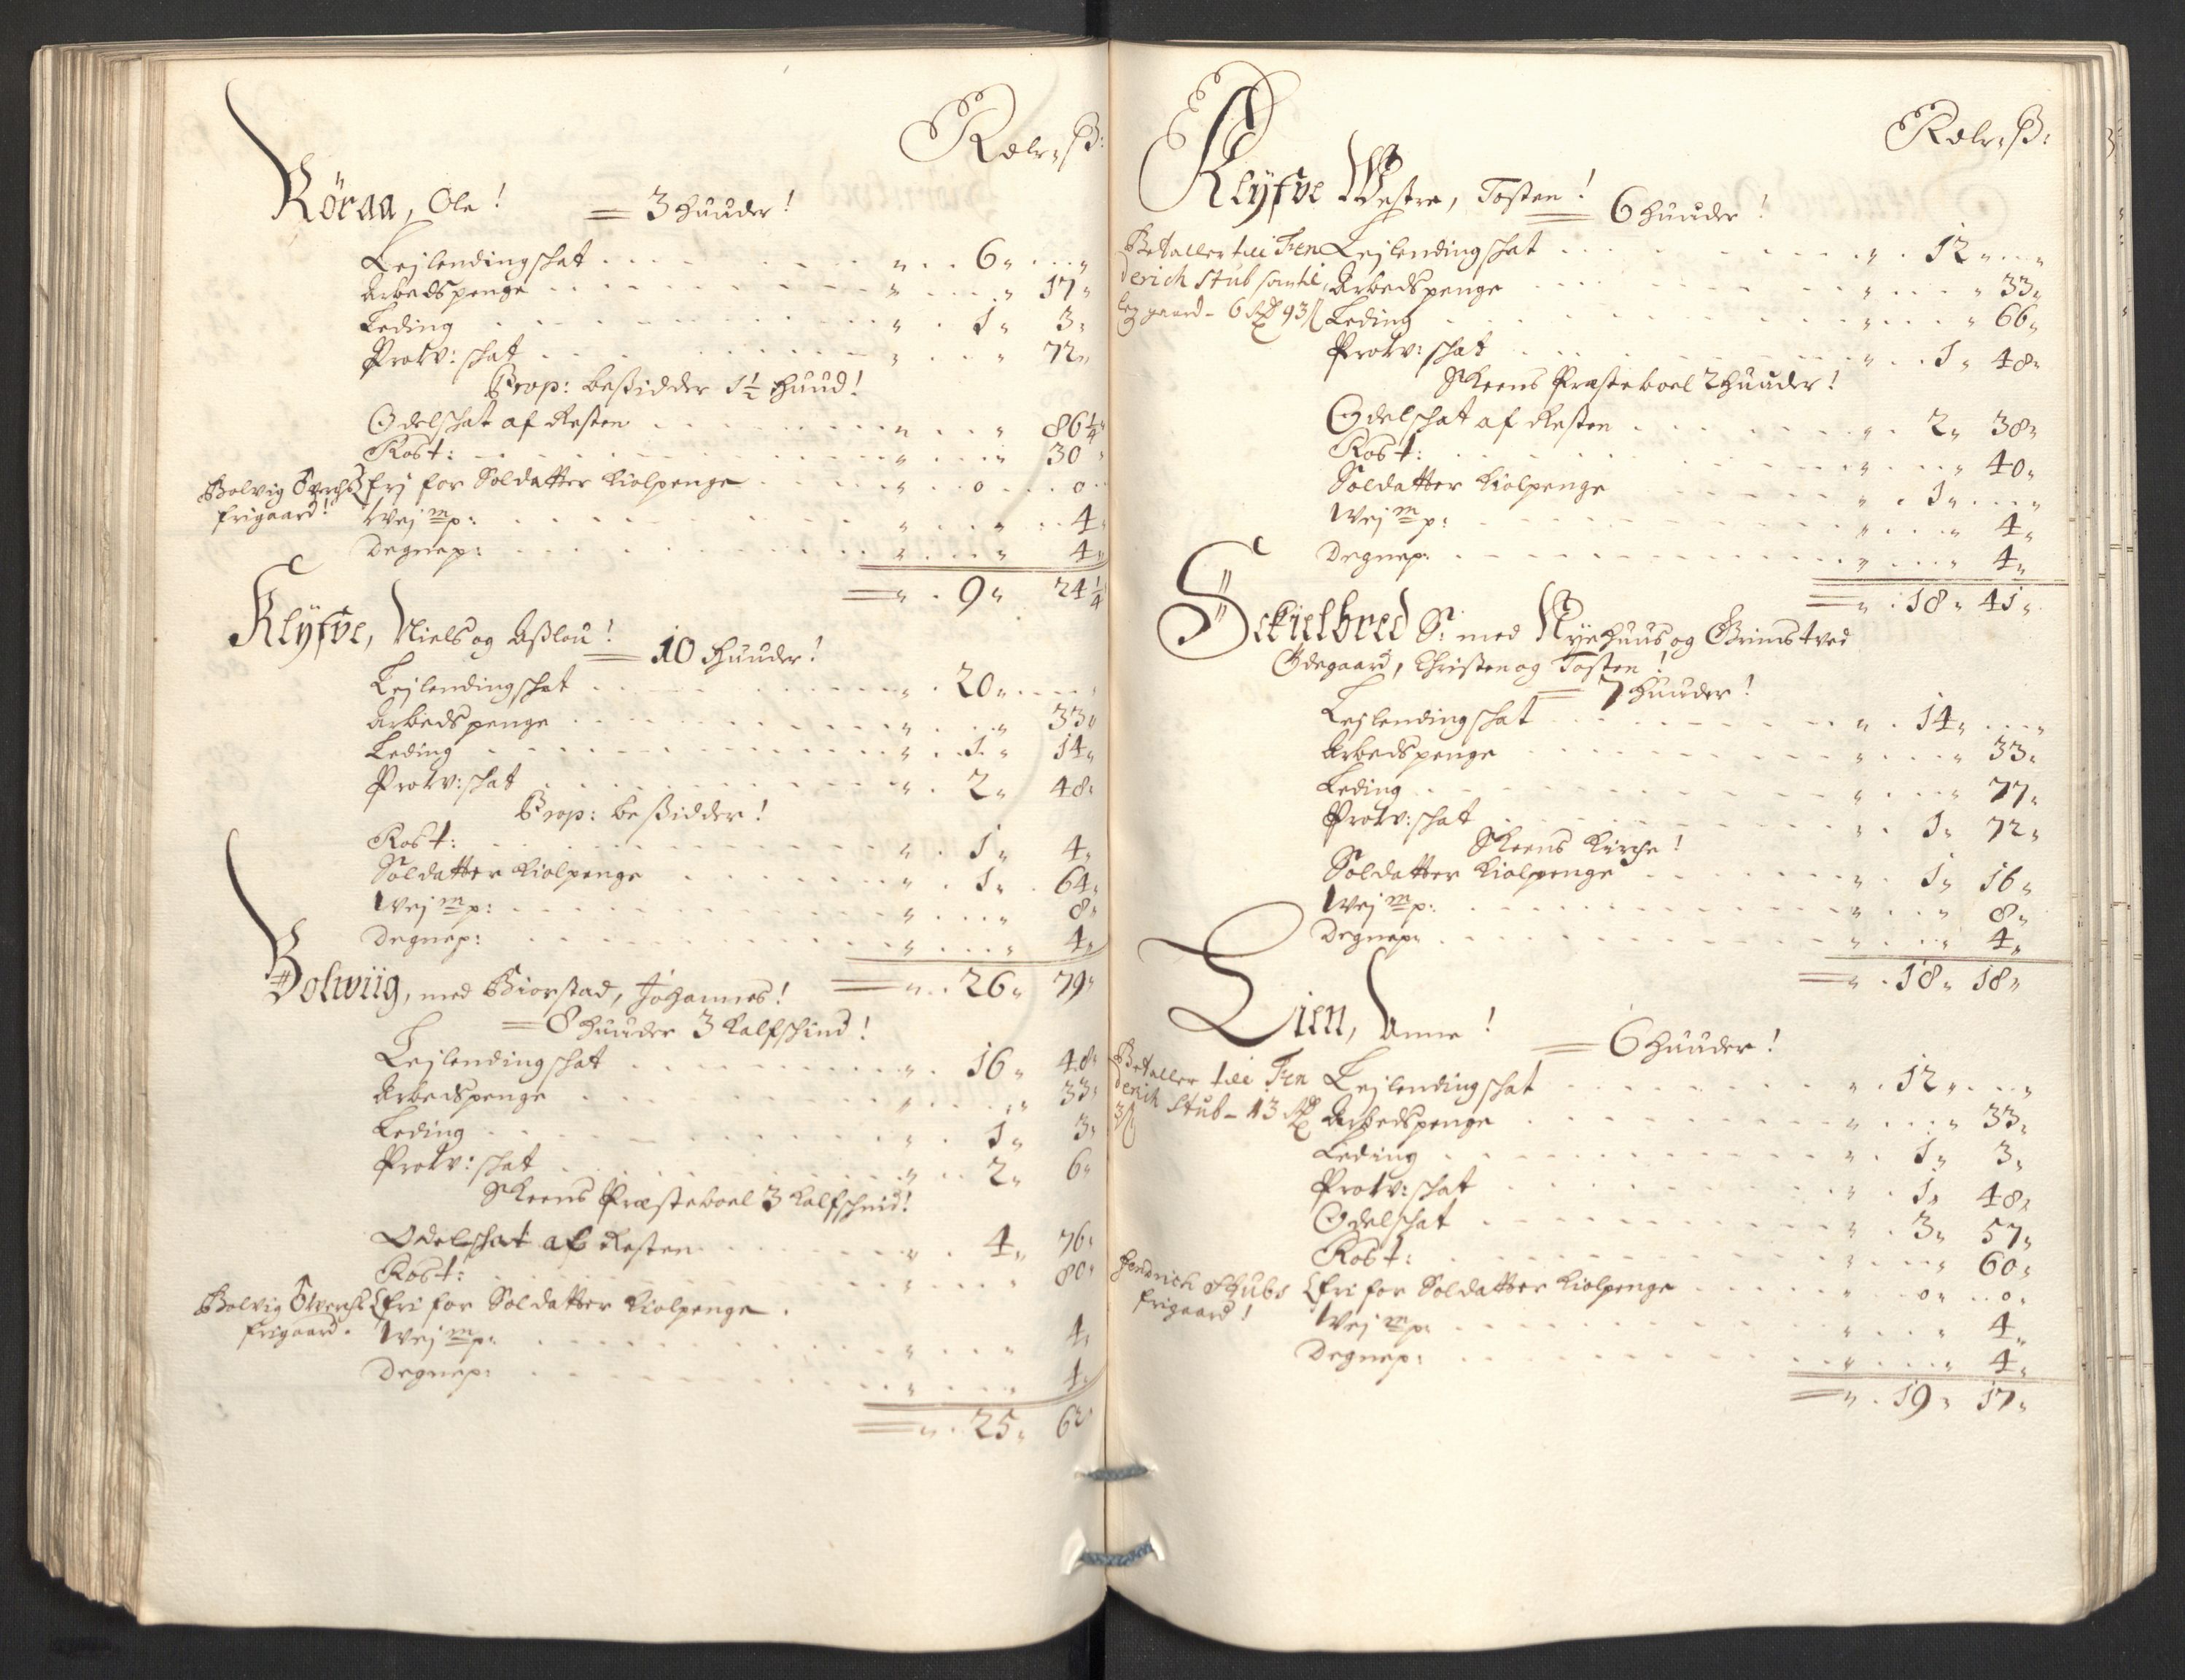 Rdlr, ß:
Röraa, Ole! = 3 Huuder!
Lejlendingschat . . . „ . . 6 „ . . . „
Arbedspenge . . . „ . . . „ 17 „
Leding . . . „ . 1 „ 3 „
Prowv: schat . . . „ . . . „ 72 „
Prop: beßidder 1½ Huud!
Odelschat af Resten . . . „ . . „ 86¼ „
Rost: . . . „ . . . „ 30 „
Bolvig
frigaard!
fri for Soldatter Kiolpenge . . . „ . 0 . . . 0
Wej m p: . . . „ . . . „ . . 4 „
Degnep: . . . „ . . . „ 4 „
= „ . 9 „ 24¼
Klyfve, Niels og Aßlou! = 10 Huuder!
Lejlendingschat . . . „ . 20 „ . . .
Arbedspenge . . . „ . . „ 33 „
Leding . . . „ . 1 „ 14 „
Prowv: schat . . . „ . 2 „ 48 „
Prop: beßidder!
Rost: . . . „ . 1 „ 4 „
Soldatter Kiolpenge . . . „ . 1 „ . 64 „
Wej m p: . . . „ . . . „ 8 „
Degnep: . . . „ . . . „ 4 „
= „ . . 26 „ 79 „
Bolwiig, med Biorstad, Johannes!
= 8 Huuder 3 Kalfschind!
Lejlendingschat . . . „ . 16 „ 48 „
Arbedspenge . . . „ . . . „ 33 „
Leding . . . „ . 1 „ 3 „
Prowv: schat . . . „ . . 2 „ 6 „
Skeens Præsteboel 3 Kalfschind!
Odelschat af Resten . . . „ . 4 „ 76 „
Rost: . . . „ . . . „ 80 „
Bolvig
frigaard.
fri for Soldatter Kiolpenge .
Wej m p: . . . „ . . . „ 4 „
Degnep: . . . „ . . . „ 4 „
= „ . 25 „ 62
Rdlr, ß:
Klyfve Westre, Tosten! = 6 Huuder!
Betaller till Fen
derich Stub
gaard – 6 Rd 93 ß
Lejlendingschat . . . „ . 12 „ . . „
Arbedspenge . . . „ . . . „ 33 „
Leding . . . „ . . . „ 66 „
Prowv: schat . . . „ . . 1 „ 48 „
Skeens Præsteboel 2 Huuder!
Odelschat af Resten . . . „ . 2 „ 38 „
Rost: . . . „ . . . „ 40 „
Soldatter Kiolpenge . . . „ . 1 „ . . . „
Wej m p: . . . „ . . . „ 4 „
Degnep: . . . „ . . . „ 4 „
= „ . 18 „ 41 „
Sckielbred S: med Nyehuus og Grimstved
Ødegaard, Christen og Tosten!
= 7 Huuder!
Lejlendingschat . . . „ . 14 „ . . . „
Arbedspenge . . . „ . . . „ 33 „
Leding . . . „ . . . „ 77 „
Prowv: schat . . . „ . 1 „ 72 „
Skeens Kirche!
Soldatter Kiolpenge . . . „ . 1 „ 16 „
Wej m p: . . . „ . . . „ 8 „
Degnep: . . . „ . . . „ 4 „
= „ . 18 „ 18 „
Lien, Anne! = 6 Huuder!
Betaller till Fen
derich Stub – 13 Rd
3 ß
Lejlendingschat . . . „ . 12 „ . . . „
Arbedspenge . . . „ . . . „ 33 „
Leding . . . „ . 1 „ 3 „
Prowv: schat . . . „ . 1 „ 48 „
Odelschat . . . „ . 3 „ 57 „
Rost: . . . „ . . . „ 60 „
Hendrich Stubs
frigaard!
fri for Soldatter Kiolpenge . . . „ . . 0 „ . . 0 .
Wej m p: . . . „ . . . „ 4 „
Degnep: . . . „ . . . „ 4 „
= „ . 19 „ 17 „